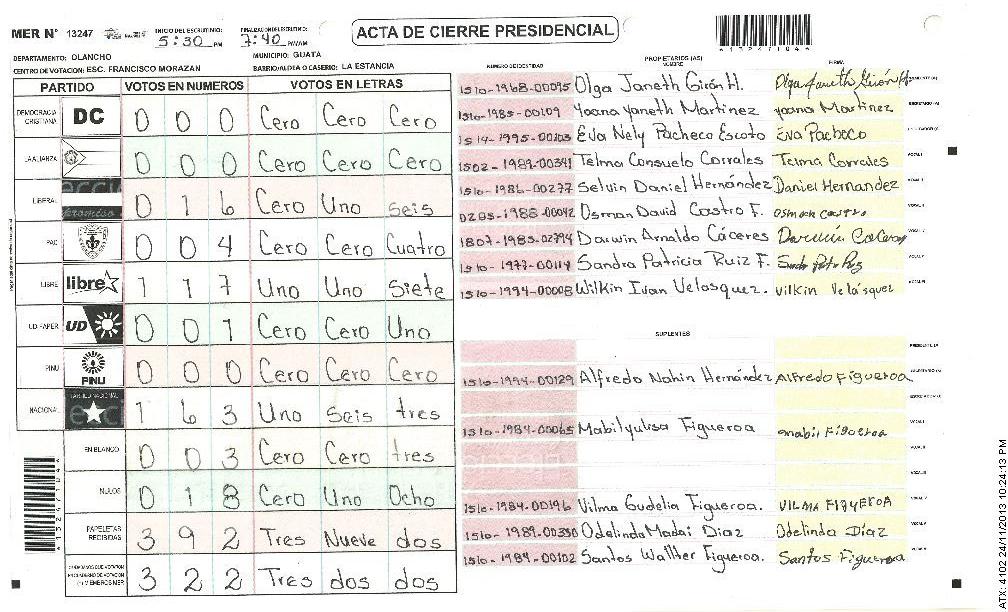 ACTA DE CIERRE PRESIDENCIAL
MER N° 13247
INICIO DEL ESCRUTINIO: 5:30 PM
FINALIZACION ESCRUTINIO: 7:40 PM/AM
DEPARTAMENTO: OLANCHO MUNICIPIO: GUATA
CENTRO DE VOTACION: ESC. FRANCISCO MORAZAN BARRIO/ALDEA O CASERIO: LA ESTANCIA
PARTIDO VOTOS EN NUMEROS VOTOS EN LETRAS
DEMOCRACIA CRISTIANA DC 0 0 0 Cero Cero Cero
LA ALIANZA 0 0 0 Cero Cero Cero
LIBERAL 0 1 6 Cero Uno seis
PAC 0 0 4 Cero Cero Cuatro
LIBRE libre 1 1 7 Uno Uno Siete
UD FAPER UD 0 0 1 Cero Cero Uno
PINU PINU 0 0 0 Cero Cero Cero
NACIONAL 1 6 3 Uno Seis tres
EN BLANCO 0 0 3 Cero Cero tres
NULOS 0 1 8 Cero Uno Ocho
PAPELETAS RECIBIDAS 3 9 2 Tres Nueve dos
3 2 2 Tres dos dos
PROPIETARIOS (AS)
NUMERO DE IDENTIDAD NOMBRE FIRMA
1510-1968-00095 Olga Janeth Girón H. Olga Janeth Girón H
1510-1985-00109 Yoana Yaneth Martinez Yoana Martinez
1514-1995-00103 Eva Nely Pacheco Escoto Eva Pacheco
1502-1989-00341 Telma Consuelo Corrales Telma Corrales
1510-1986-00277 Selvin Daniel Hernández Daniel Hernandez
0205-1988-00042 Osman David Castro F. Osman castro
1807-1985-02794 Darwin Arnaldo Cáceres
1510-1977-00114 Sandra Patricia Ruiz F.
1510-1994-00008 Wilkin Ivan Velasquez. Vilkin Velásquez
SUPLENTES
1510-1994-00129 Alfredo Nahin Hernández Alfredo Figueroa
1510-1984-00065 Mabilyulisa Figueroa mabil Figueroa
1510-1984-00196 Vilma Gudelia Figueroa. VILMA FIGUEROA
1510-1989-00350 Odelinda Madai Diaz Odelinda Díaz
1510-1984-00102 Santos Walther Figueroa. Santos Figueroa
ATX 4102 24/11/2013 10:24:13 PM